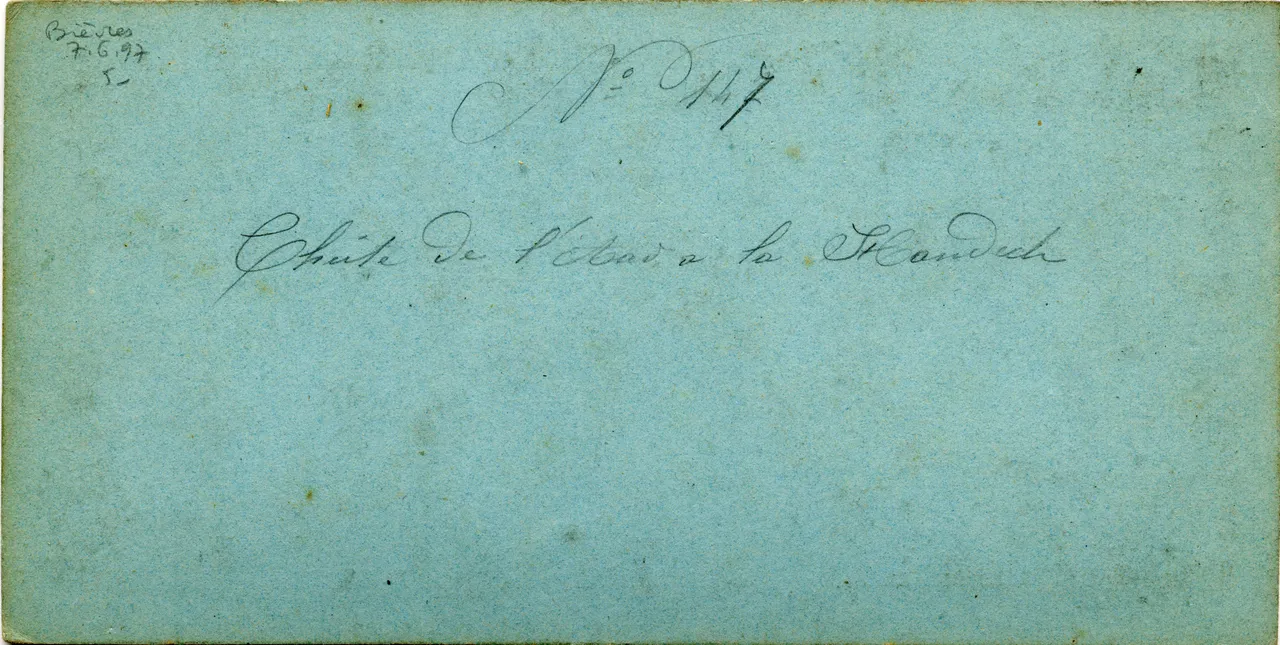 Bièvres
7.6.97
5-
Nº 147
Chûte de l'Aar a la Handech